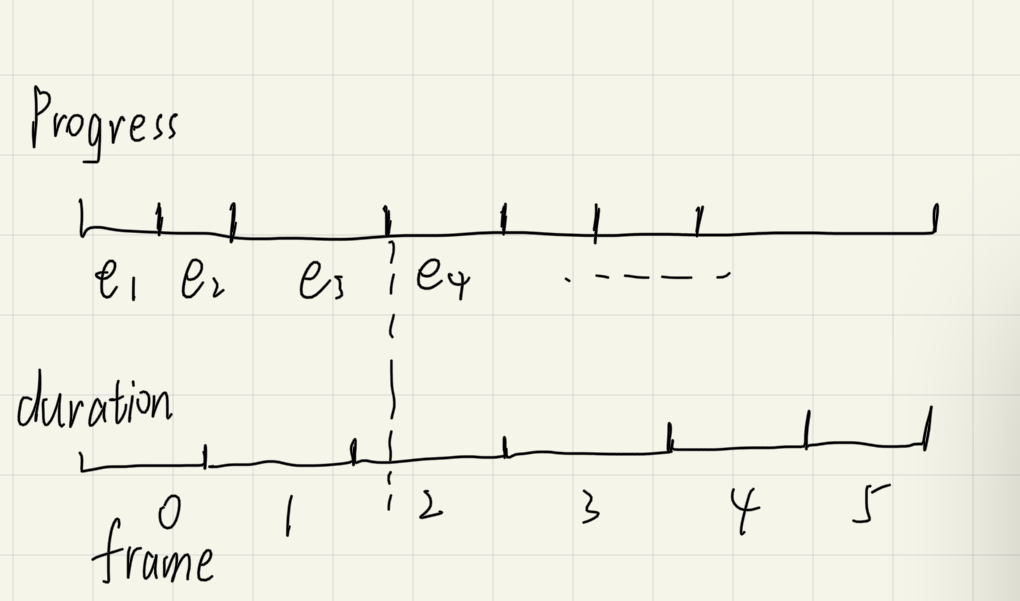 Progress
e1 e2 e3 e4
duration
0 1 2 3 4 5
frame